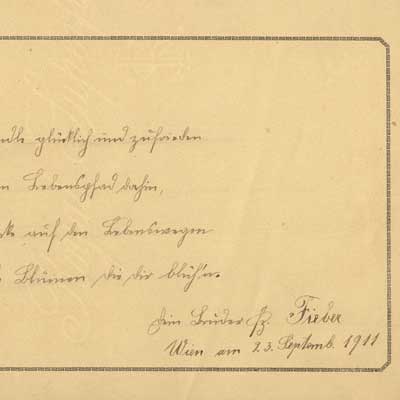 glücklich und zufrieden
Lebenspfad dahin,
auf den Lebenswegen
Blümen die dir blüh'n.
Dein Bruder Fz. Fieber
Wien am 23. Septemb. 1911